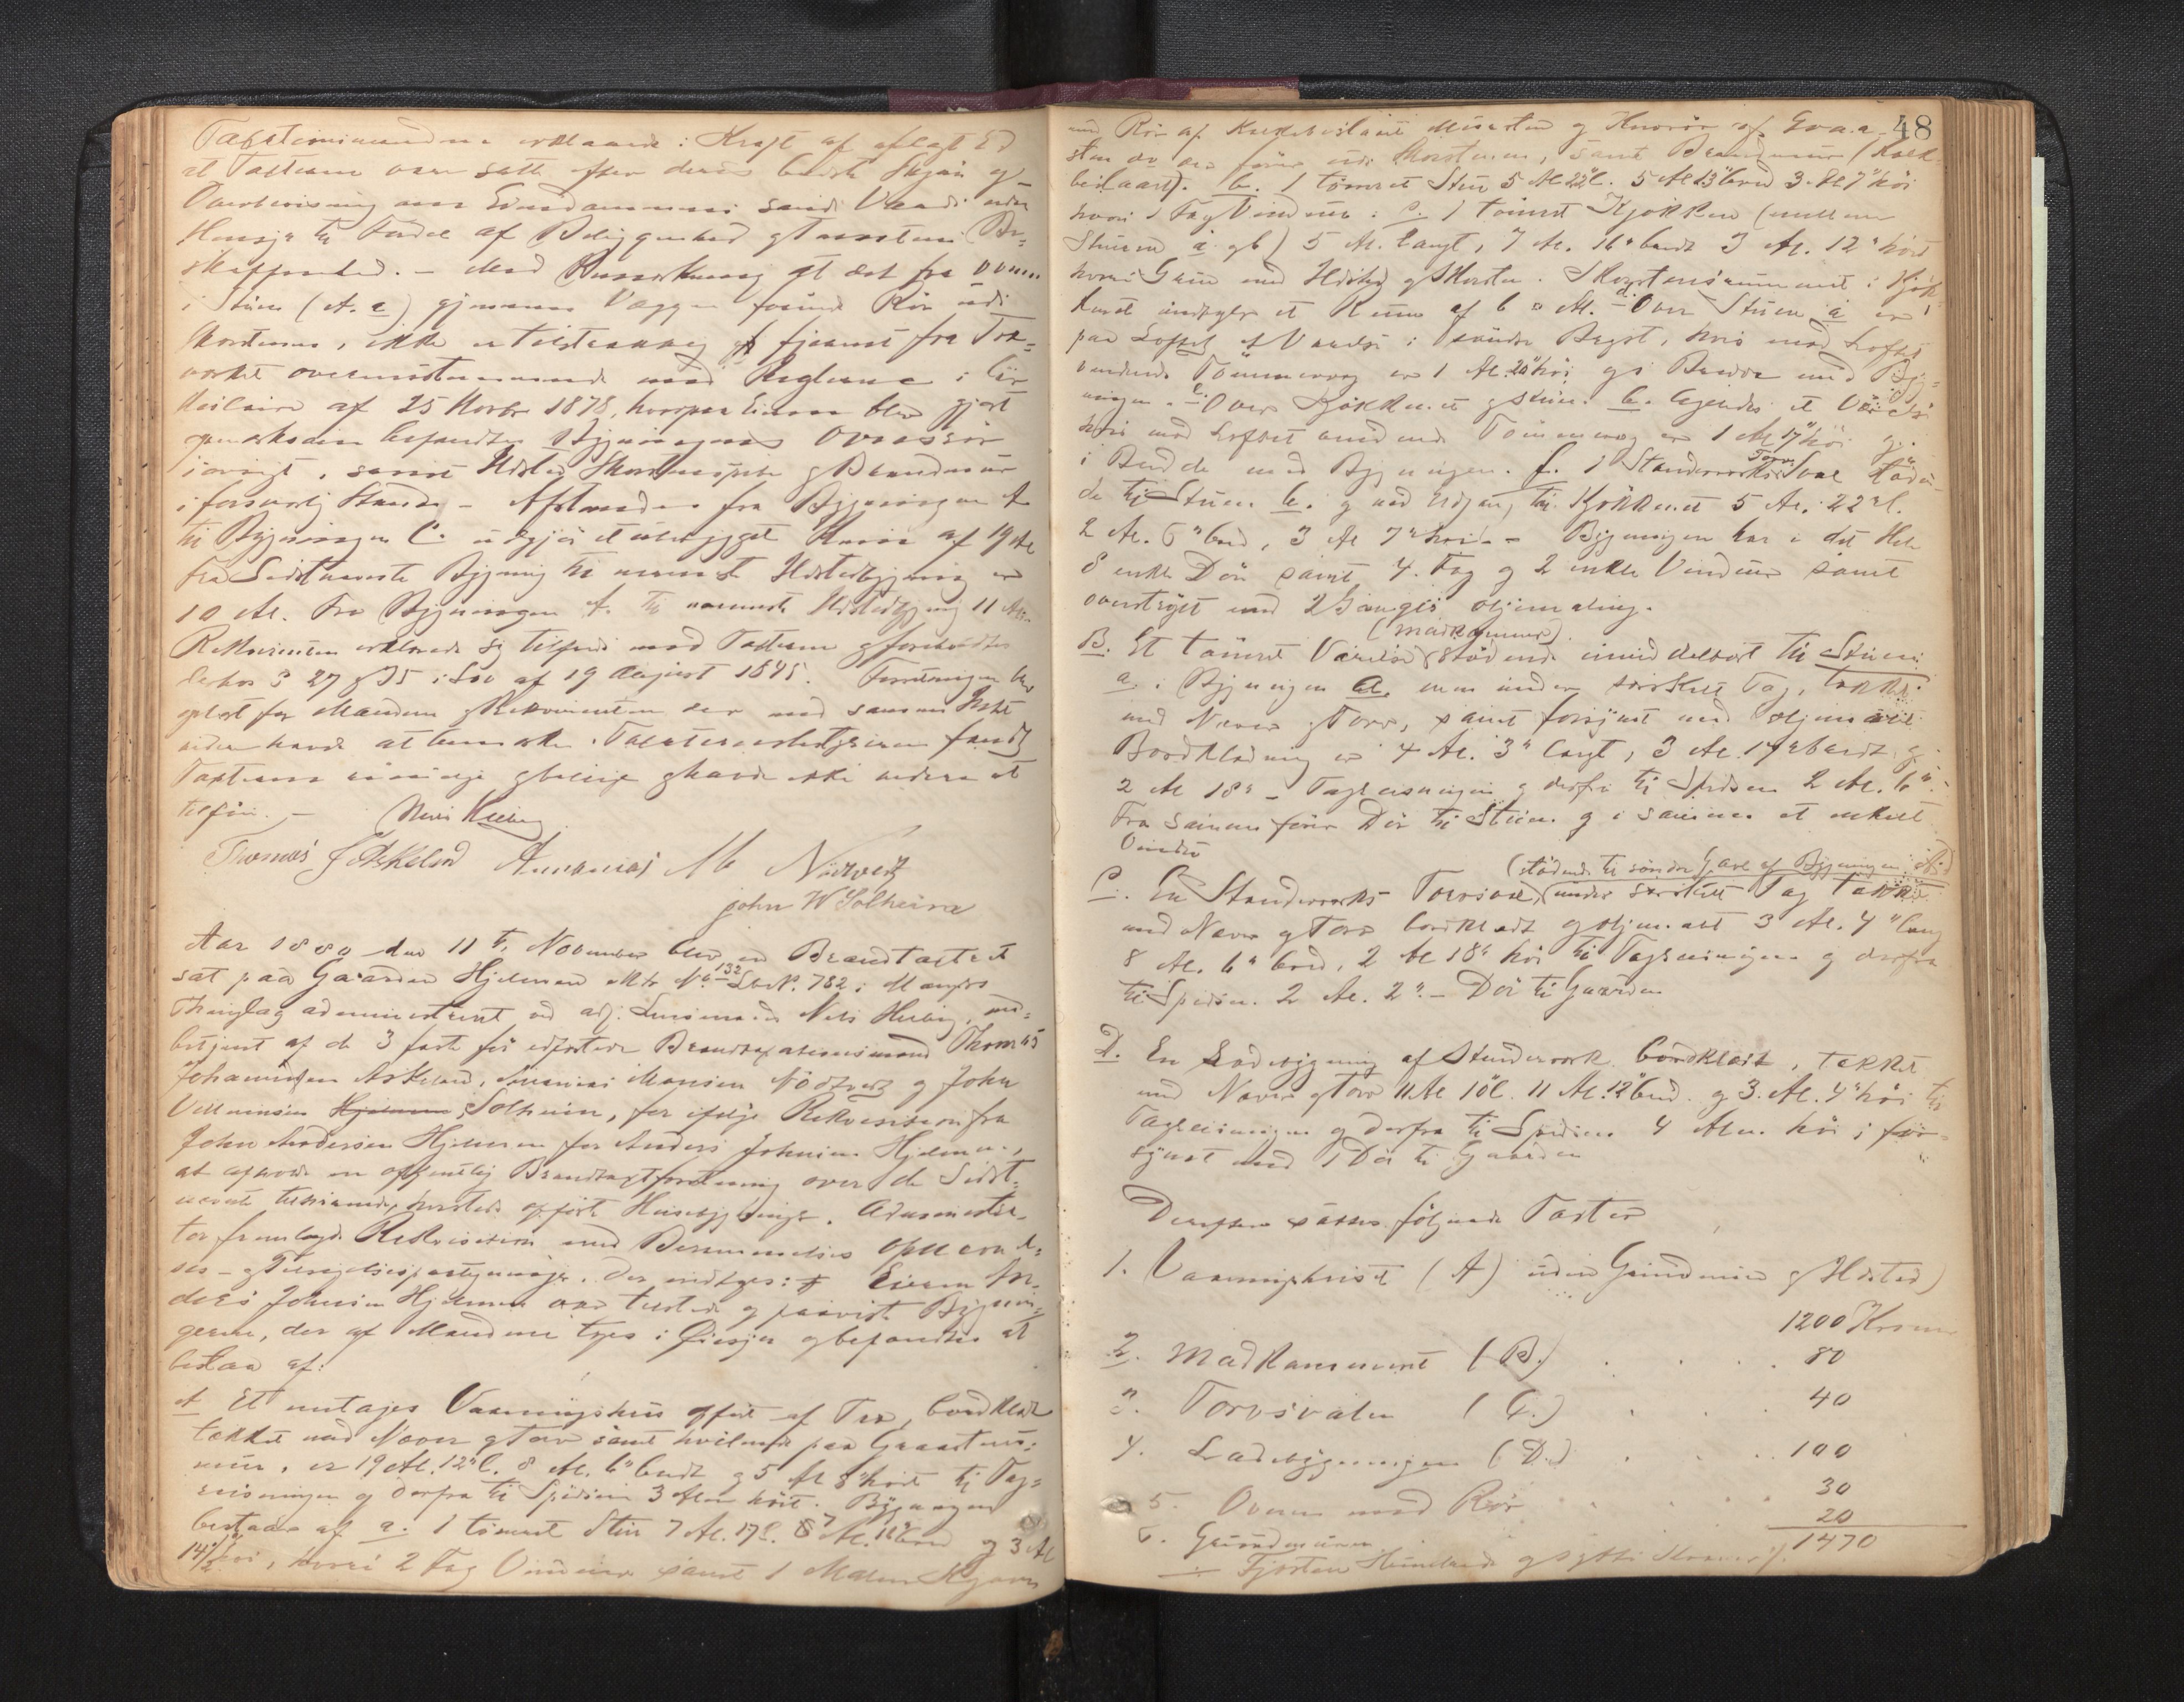 Taxationsmændene erklærede i Kraft af aflagt Ed
at Taxterne vare satte efter deres bedste Skjøn og
Overbevisning om Eiendommens sande Værdi uden
Hensyn til Fordel af Beliggenhed
skaffenhed. – Med Bemærkning at det fra Ovnen
i Stuen (A. a) gjennem Væggen førende Rør udi
Skorstenen, ikke er tilstrækkelig fjernet fra Træ-
værket overensstemmende med Reglerne i Cir-
kulaire af 25 Novbr 1878, hvorpaa Eieren blev gjort
opmærksom befandtes Bygningernes Ovnsrør
iøvrigt, samt Ildsted, Skorstenspibe og Brandmur
i forsvarlig Stand. – Afstanden fra Bygningen A
til Bygningen C. udgjør et ubebygget Rum af 19 Al
Fra Sidstnævnte Bygning til nærmeste Ildstedbygning er
10 Al. Fra Bygningen A. til nærmeste Ildstedbygning 11 Al.
Rekvirenten erklærede sig tilfreds med Taxterne og foreholdtes
derhos § 27 og 35 i Lov af 19 August 1845. Forretningen blev
oplæst for Mændene og Rekvirenten der mod samme Intet
videre havde at bemærke. Taxtens bestyreren fandt
Taxterne rimelige og billige og havde ikke videre at
tilføie. – Nils Helberg
Thomas J Askeland Ananias M Nødtvedt
John W Solheim
Aar 1880 den 11te November blev en Brandtaxtret
sat paa Gaarden Hjelmen Mtr No 132 Lb N. 782 i Mangers
Thinglag administreret ved adj. Lensmand Nils Helberg, med-
betjent af de 3 faste før edfæstede Brandtaxationsmænd Thomas
Johannesen Askeland, Ananias Monsen Nødtvedt og John
Villumsen Hjelmen Solheim, for ifølge Rekvisition fra
John Andersen Hjelmen for Anders Johnsen Hjelmen,
at afholde en offentlig Brandtaxtforretning over de Sidst-
nævnte tilhørende, hersteds opførte Huusbygninger. Administra-
tor fremlagde Rekvisition med Berammelses Opnævnel-
ses- og Tilsigelsespaategninger. Der indtages: Eieren An-
ders Johnsen Hjelmen var tilstede og paaviste Bygnin-
gerne, der af Mændene toges i Øiesyn og befandtes at
bestaa af:
A Et enetages Vaaningshus opført af Træ, bordklædt
tækket med Næver og Torv samt hvilende paa Graasteens-
mur, er 19 Al. 12" l. 8 Al. 6" bredt og 5 Al 8" høit til Tag-
reisningen og derfra til Spidsen 3 Alen høit. Bygningen
bestaar af a. 1 tømret Stue 7 Al. 17" l. 7 Al. 16" bred og 3 Al
14½" høi, hvori 2 Fag Vinduer samt 1
48
ned Rør af
sten der fører udi Skorstenen, samt Brandmur (Kalk-
beslaaet). b. 1 tømret Stue 5 Al 22" l. 5 Al 13" bred 3 Al 7" høi
hvori 1 Fag Vindue. c. 1 tømret Kjøkken (mellem
Stuerne a og b) 5 Al. langt, 7 Al. 16" bredt 3 Al. 12" høit
hvori Gruve med Ildsted og Skorsten. Skorstensrummet i Kjøk-
kenet indtager et Rum af 6 □ Al. d. Over Stuen a er
paa Loftet et Værelse i søndre Bryst, hvis mod Loftet
vendende Tømmervæg er 1 Al. 20" høi og i Bredde med Byg-
ningen. e. Over Kjøkkenet og Stuen b. ligesaa et Værelse
hvis mod Loftet vendende Tømmervæg er 1 Al 17" høi og
i Bredde med Bygningen. f. 1 Standerværks Torv Sval støden-
de til Stuen b. og med Udgang til Kjøkkenet 5 Al. 22" l.
2 Al. 6" bred, 3 Al 7" høi. – Bygningen har i det Hele
8 enkle Døre samt 4 Fag og 2 enkle Vinduer samt
overstrøget med 2 Ganges Oljemaling.
B. Et tømret Værelse (Madkammer) stødende umiddelbart til Stuen
a i Bygningen A. men under særskilt Tag, tækket
med Næver og Torv, samt forsynet med oljemalet
Bordklædning er 4 Al. 3" langt, 3 Al. 14" bredt og
2 Al 18" – Tagreisningen og derfra til Spidsen 2 Al. 6". –
Fra samme fører Dør til Stuen og i samme et enkelt
Vindue
C. En Standerværks Torvsval, (stødende til søndre Gavl af Bygningen A) under særskilt Tag tækket
med Næver og Torv bordklædt og oljemalt 3 Al. 4" lang
8 Al. 6" bred, 2 Al 18" høi til Tagreisningen og derfra
til Spidsen 2 Al. 2". – Dør til Gaarden
D. En Ladebygning af Standerværk bordklædt, tækket
med Næver og Torv 11 Al 10" l. 11 Al. 12" bred. og 3. Al. 4" høi til
Tagreisningen og derfra til Spidsen 4 Alen høi; for-
synet med 1 Dør til Gaarden
Derefter sattes følgende Taxter
1. Vaaningshuset (A) uden Grundmur og Ildsted
1200 Kroner
2. Madkammeret (B.) . . . . 80
3. Torvsvalen (C.) . . . 40
4. Ladebygningen (D.) . . . 100
5. Ovnen med Rør . . . . 30
6. Grundmuren 20
1470
Fjorten Hundrede og sytti Kroner